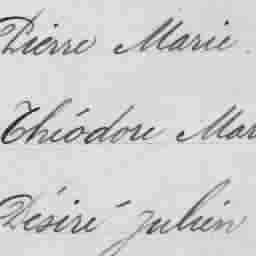 Pierre Marie
Théodore Mar
Désiré Julien